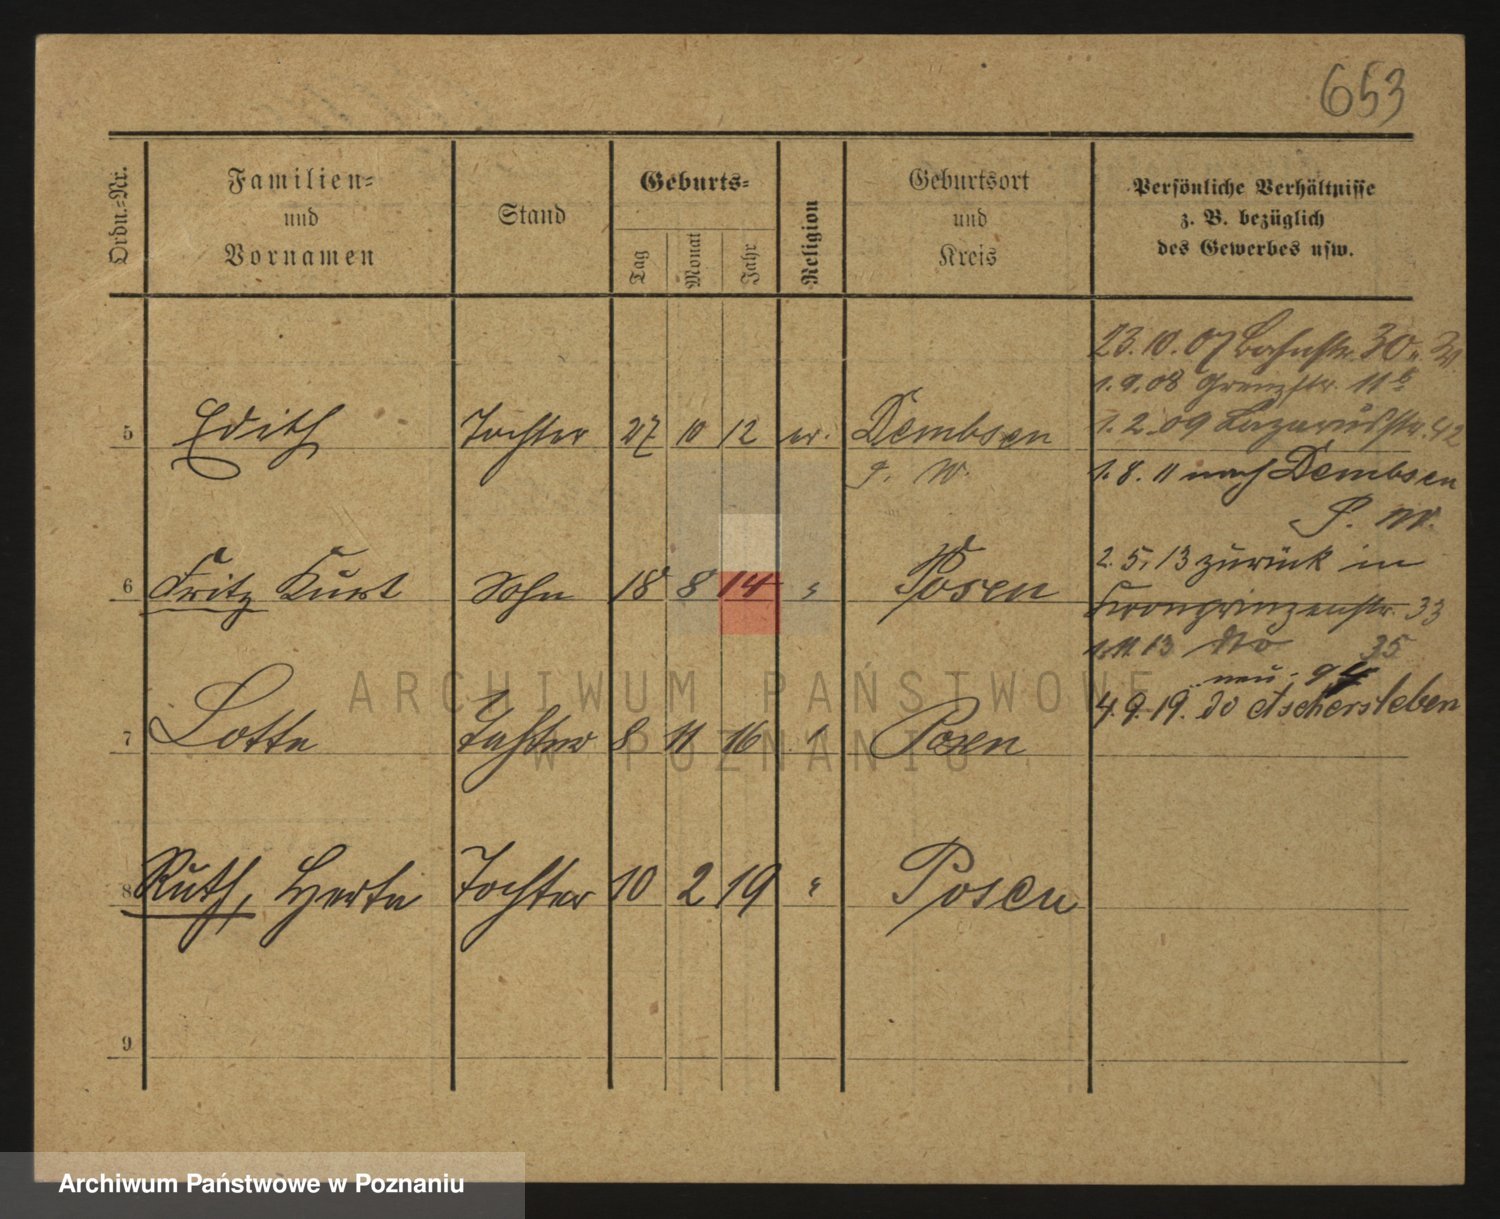 653
Ordn.-Nr.
Familien-
und
Vornamen
Stand
Geburts-
Tag
Monat
Jahr
Religion
Geburtsort
und
Kreis
Persönliche Verhältnisse
z. B. bezüglich
des Gewerbes usw.
23.10.07 Bahnstr. 30
1.9.08 Grenzstr. 11
1.2.09 Lazarusstr. 42
5 Edith Tochter 27 10 12 ev. Dembsen
P. W.
1.8.11 nach Dembsen
P. W.
2.5.13 zurück in
6 Fritz Kurt Sohn 18 8 14 " Posen
Kronprinzenstr. 33
1.11.13 dto 35
neu: 94
4.9.19. do Aschersleben
7 Lotte Tochter 8 11 16 " Posen
8 Ruth, Herta Tochter 10 2 19 " Posen
9
ARCHIWUM PAŃSTWOWE
W POZNANIU
Archiwum Państwowe w Poznaniu